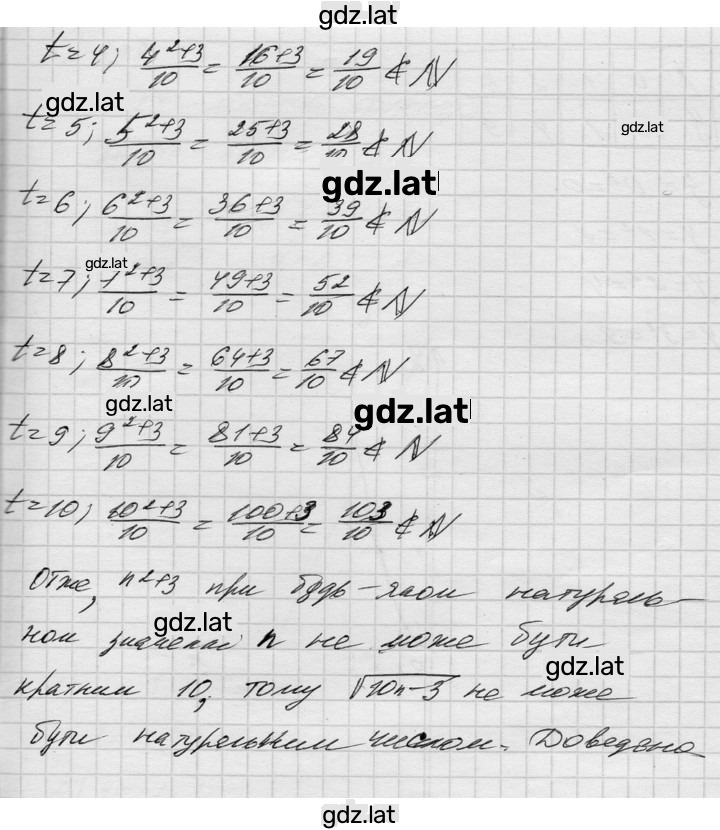 gdz.lat
t=4; (4²+3)/10 = (16+3)/10 = 19/10 ∉ N
gdz.lat
t=5; (5²+3)/10 = (25+3)/10 = 28/10 ∉ N
gdz.lat
gdz.lat
t=6; (6²+3)/10 = (36+3)/10 = 39/10 ∉ N
gdz.lat
t=7; (7²+3)/10 = (49+3)/10 = 52/10 ∉ N
t=8; (8²+3)/10 = (64+3)/10 = 67/10 ∉ N
gdz.lat
gdz.lat
t=9; (9²+3)/10 = (81+3)/10 = 84/10 ∉ N
t=10; (10²+3)/10 = (100+3)/10 = 103/10 ∉ N
Отже, n²+3 при будь-яком натураль-
gdz.lat
ном значенні n не може бути
gdz.lat
кратним 10, тому √10n-3 не може
бути натуральним числом. Доведено
gdz.lat